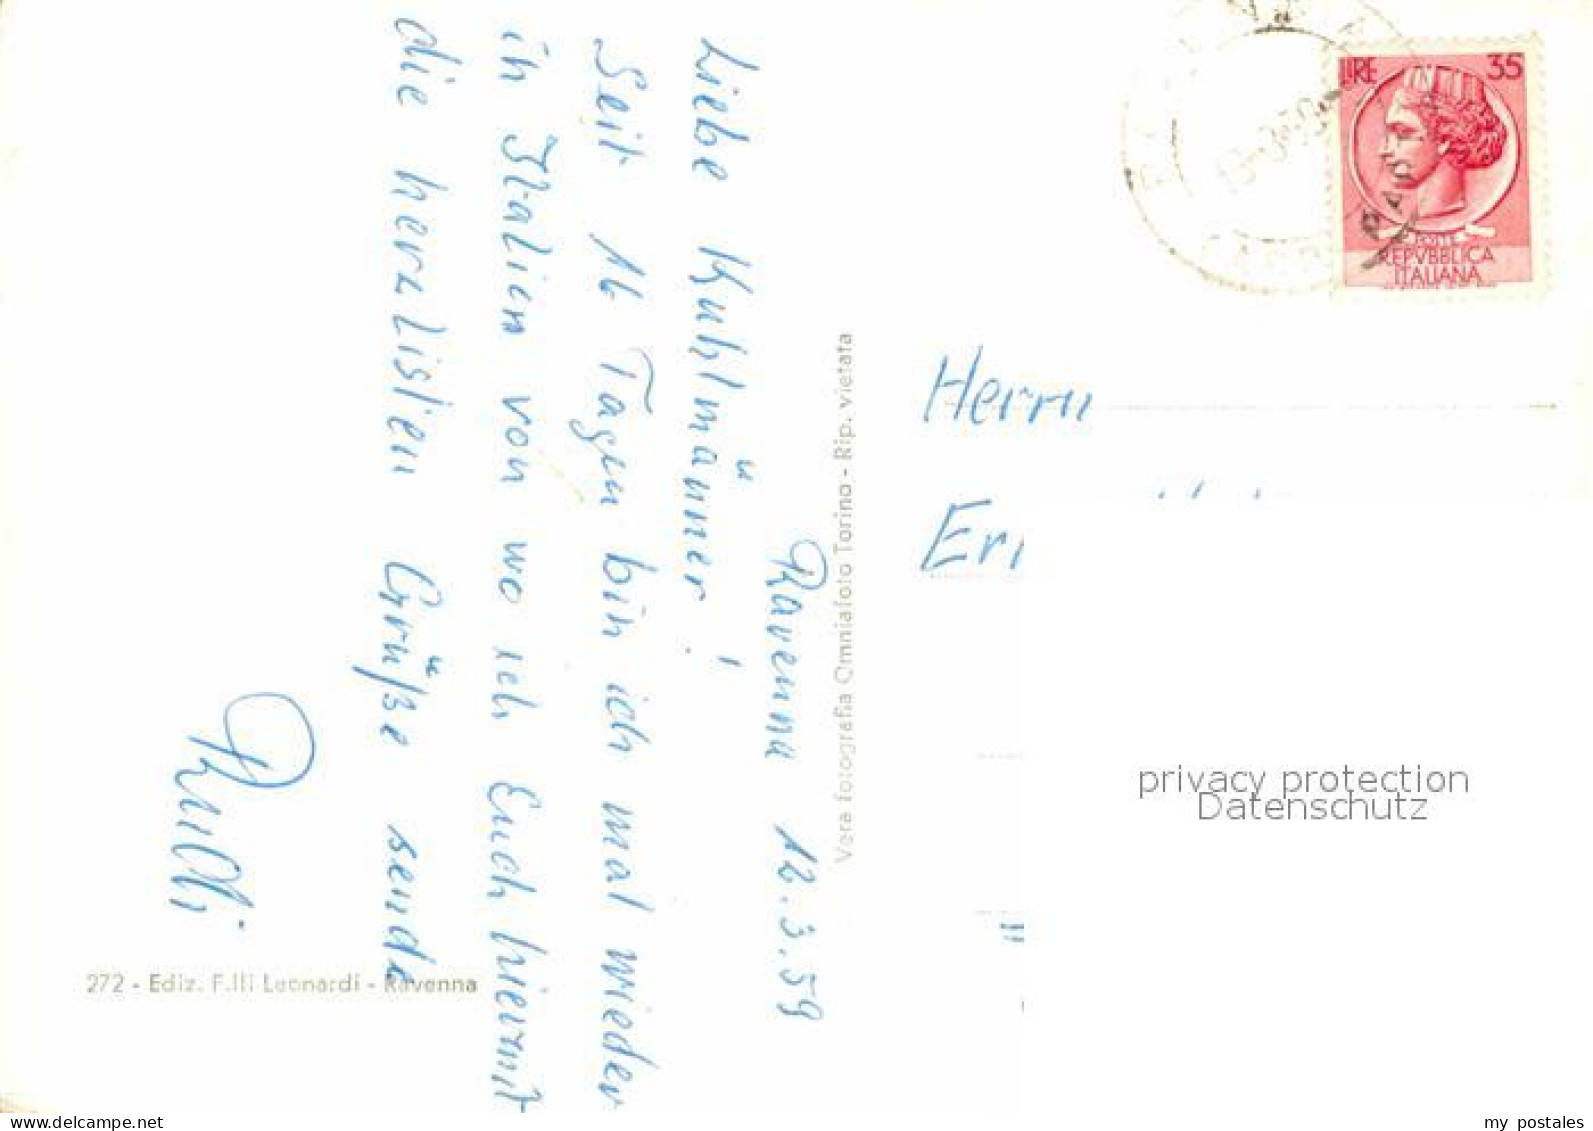 Ravenna 12.3.59
Liebe Kuhlmänner!
Seit 16 Tagen bin ich mal wieder
in Italien von wo ich Euch hiermit
die herzlisten Grüße sende
Rulli
272 - Ediz. F.lli Leonardi - Ravenna
Vera fotografia Omniafoto Torino - Rip. vietata
LIRE 35
POSTE
REPVBBLICA
ITALIANA
Herrn
Eri
privacy protection
Datenschutz
www.delcampe.net
my postales